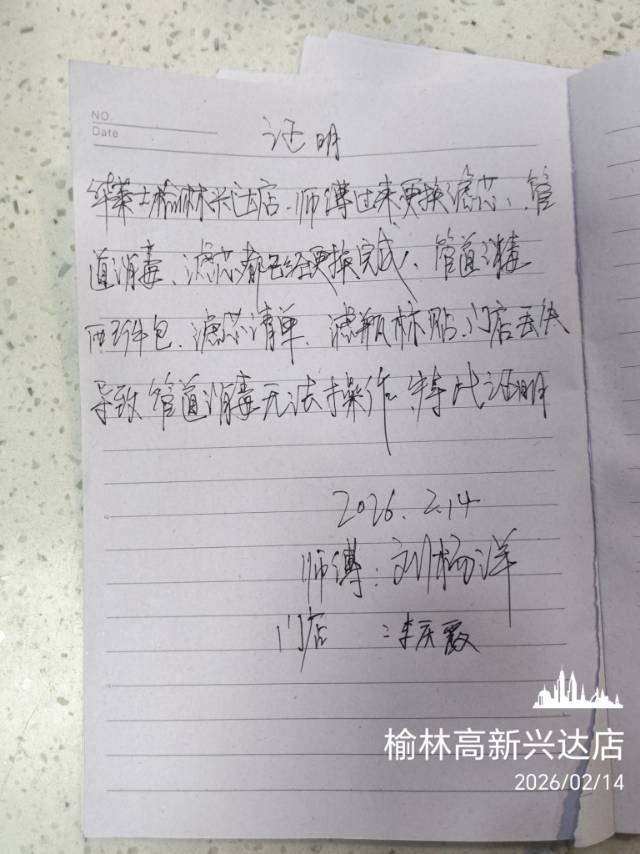 NO
Date
证明
华莱士榆林兴达店、师傅过来更换滤芯、管
道消毒、滤芯都已经更换完成、管道消毒
包、滤芯清单、滤瓶标贴、门店丢失
导致管道消毒无法操作 特此证明
2026.2.14
师傅：刘杨洋
门店：李庆
榆林高新兴达店
2026/02/14